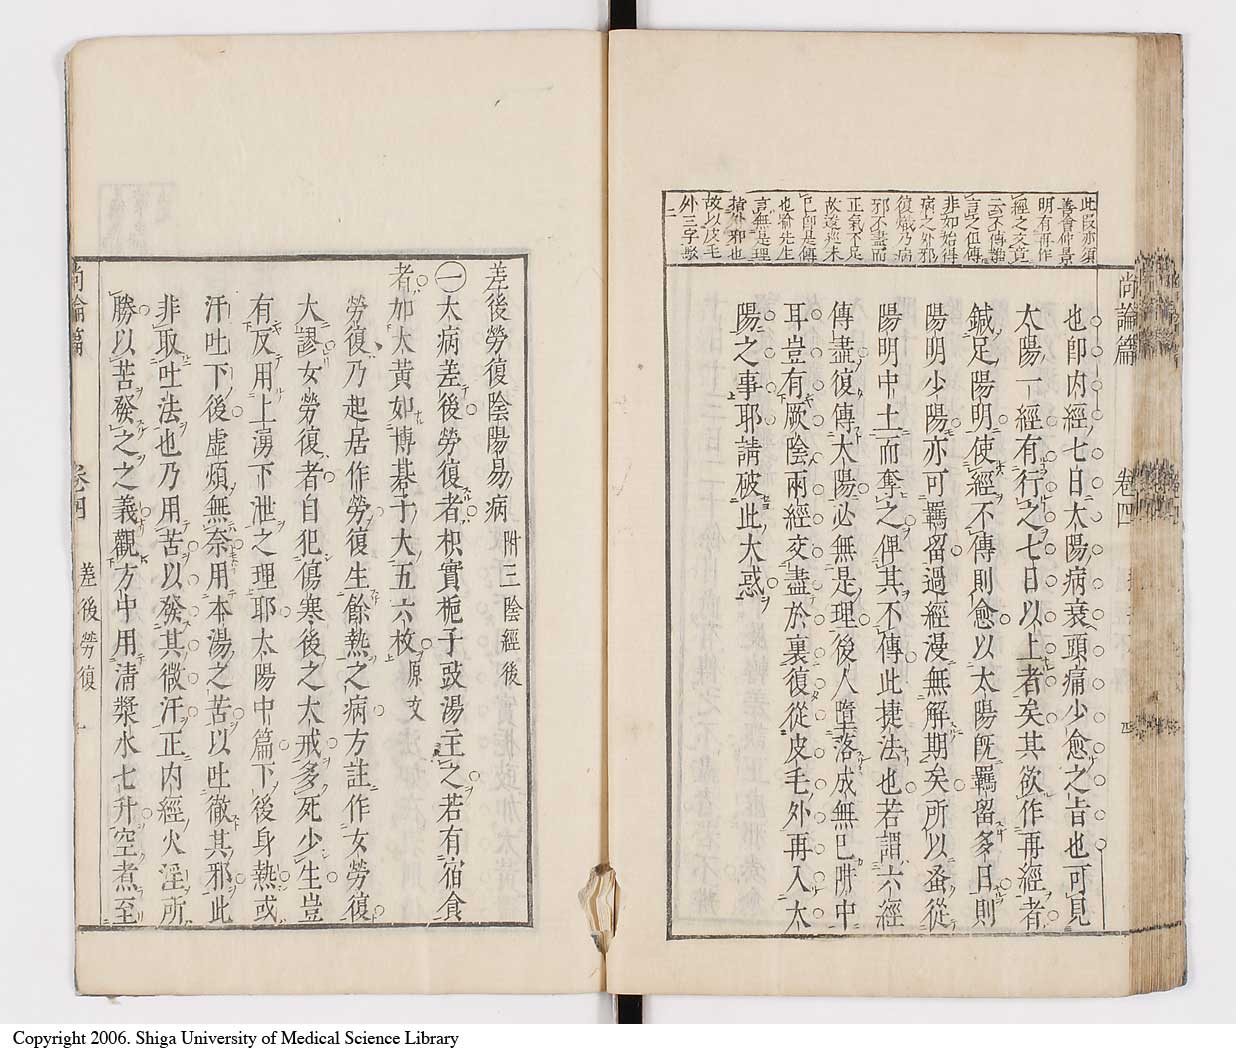 此段亦須
善會仲景
明有再作
經之文寧
云不傳誰
言之但傳
非如始得
病之外邪
復熾乃病
邪不盡而
正氣不足
故邊巡未
已即是傳
也喻先生
言無是理
搶外邪也
故以皮毛
外三字駁
二
尚論篇 卷四
也卽内經七日太陽病衰頭痛少愈之旨也可見
太陽一經有行之七日以上者矣其欲作再經者
鍼足陽明使經不傳則愈以太陽旣羈留多日則
陽明少陽亦可羈留過經漫無解期矣所以蚤從
陽明中土而奪之俾其不傳此捷法也若謂六經
傳盡復傳太陽必無是理後人墮落成無巳阱中
耳豈有厥陰兩經交盡於裏復從皮毛外再入太
陽之事耶請破此大惑
差後勞復陰陽易病 附三陰經後
㊀大病差後勞復者枳實梔子豉湯主之若有宿食
者加大黃如博碁子大五六枚 原文
勞復乃起居作勞復生餘熱之病方註作女勞復
大謬女勞復者自犯傷寒後之大戒多死少生豈
有反用上湧下泄之理耶太陽中篇下後身熱或
汗吐下後虛煩無奈用本湯之苦以吐徹其邪此
非取吐法也乃用苦以發其微汗正内經火淫所
勝以苦發之之義觀方中用清漿水七升空煮至
尚論篇 卷四 差後勞復 一
Copyright 2006. Shiga University of Medical Science Library